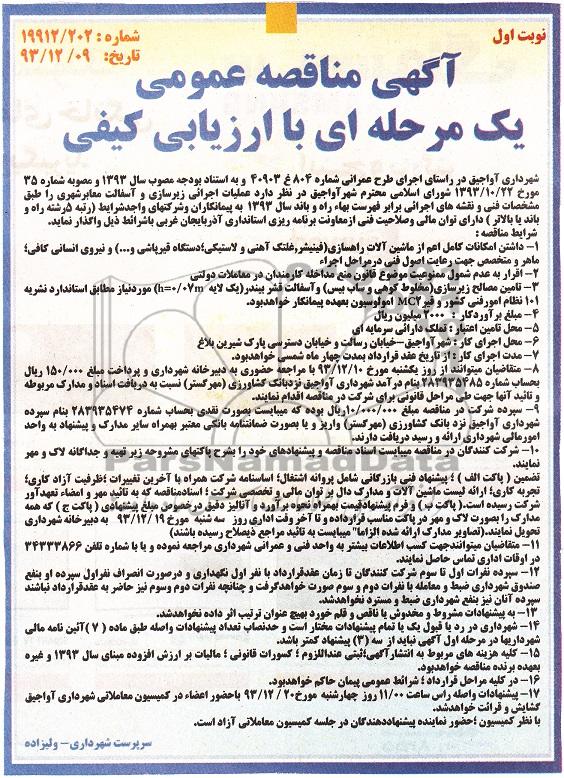 نوبت اول
شماره : ۱۹۹۱۲/۲۰۲
تاریخ: ۹۳/۱۲/۰۹
آگهی مناقصه عمومی
یک مرحله ای با ارزیابی کیفی
شهرداری آواجیق در راستای اجرای طرح عمرانی شماره ۸۰۴ غ ۴۰۹۰۳ و به استناد بودجه مصوب سال ۱۳۹۳ و مصوبه شماره ۳۵
مورخ ۱۳۹۳/۱۰/۲۲ شورای اسلامی محترم شهرآواجیق در نظر دارد عملیات اجرائی زیرسازی و آسفالت معابرشهری را طبق
مشخصات فنی و نقشه های اجرائی برابر فهرست بهاء راه و باند سال ۱۳۹۳ به پیمانکاران وشرکتهای واجدشرایط (رتبه ۵رشته راه و
باند یا بالاتر ) دارای توان مالی وصلاحیت فنی ازمعاونت برنامه ریزی استانداری آذربایجان غربی باشرائط ذیل واگذار نماید.
شرایط مناقصه :
۱- داشتن امکانات کامل اعم از ماشین آلات راهسازی(فینیشر،غلتک آهنی و لاستیکی؛دستگاه قیرپاشی و...) و نیروی انسانی کافی؛
ماهر و متخصص جهت رعایت اصول فنی درمراحل اجراء
۲- اقرار به عدم شمول ممنوعیت موضوع قانون منع مداخله کارمندان در معاملات دولتی
۳- تامین مصالح زیرسازی(مخلوط کوهی و ساب بیس) وآسفالت قشر بیندر(یک لایه h=۰/۰۷m) موردنیاز مطابق استاندارد نشریه
۱۰۱ نظام امورفنی کشور و قیرMC۲ امولوسیون بعهده پیمانکار خواهدبود.
۴- مبلغ برآوردکار : ۲۰۰۰ میلیون ریال
۵- محل تامین اعتبار : تملک دارائی سرمایه ای
۶- محل اجرای کار : شهرآواجیق –خیابان رسالت و خیابان دسترسی پارک شیرین بلاغ
۷- مدت اجرای کار : از تاریخ عقد قرارداد بمدت چهار ماه شمسی خواهدبود.
۸- متقاضیان میتوانند از روز یکشنبه مورخ ۹۳/۱۲/۱۰ با مراجعه حضوری به دبیرخانه شهرداری و پرداخت مبلغ ۱۵۰/۰۰۰ ریال
بحساب شماره ۲۸۳۹۳۵۴۸۵ بنام درآمد شهرداری آواجیق نزدبانک کشاورزی (مهرگستر) نسبت به دریافت اسناد و مدارک مربوطه
و تائید آنها جهت طی مراحل قانونی برای شرکت در مناقصه اقدام نمایند.
۹- سپرده شرکت در مناقصه مبلغ ۱۰/۰۰۰/۰۰۰ریال بوده که میبایست بصورت نقدی بحساب شماره ۲۸۳۹۳۵۴۷۴ بنام سپرده
شهرداری آواجیق نزد بانک کشاورزی (مهرگستر) واریز و یا بصورت ضمانتنامه بانکی معتبر بهمراه سایر مدارک و پیشنهاد به واحد
امورمالی شهرداری ارائه و رسید دریافت دارند.
۱۰- شرکت کنندگان در مناقصه میبایست اسناد مناقصه و پیشنهادهای خود را بشرح پاکتهای مشروحه زیر تهیه و جداگانه لاک و مهر
نمایند.
تضمین ( پاکت الف ) ؛ پیشنهاد فنی بازرگانی شامل پروانه اشتغال؛ اساسنامه شرکت همراه با آخرین تغییرات ؛ظرفیت آزاد کاری؛
تجربه کاری؛ ارائه لیست ماشین آلات و مدارک دال بر توان مالی و تخصصی شرکت ؛ اسنادمناقصه که به تائید مهر و امضاء تعهدآور
شرکت رسیده است.( پاکت ب) و فرم پیشنهادقیمت بهمراه نحوه برآورد و آنالیز دقیق درخصوص مبلغ پیشنهادی ( پاکت ج) که همه
مدارک را بصورت لاک و مهر در پاکت مناسب قرارداده و تا آخر وقت اداری روز سه شنبه مورخ ۹۳/۱۲/۱۹ به دبیرخانه شهرداری
تحویل نمایند.(تصاویر مدارک ارائه شده الزاما" میبایست به تائید مراجع ذیصلاح رسیده باشند)
۱۱- متقاضیان میتوانندجهت کسب اطلاعات بیشتر به واحد فنی و عمرانی شهرداری مراجعه نموده و یا با شماره تلفن ۳۴۳۳۳۸۶۶
در اوقات اداری تماس حاصل نمایند.
۱۲- سپرده نفرات اول تا سوم شرکت کنندگان تا زمان عقدقرارداد با نفر اول نگهداری و درصورت انصراف نفراول سپرده او بنفع
صندوق شهرداری ضبط و معامله با نفرات دوم و سوم صورت خواهدگرفت و چنانچه نفرات دوم وسوم نیز حاضر به عقدقرارداد نباشند
سپرده آنان نیز بنفع شهرداری ضبط و مسترد نخواهدشد.
۱۳- به پیشنهادات مشروط و مخدوش یا ناقص و قلم خورد بهیچ عنوان ترتیب اثر داده نخواهدشد.
۱۴- شهرداری در رد یا قبول یک یا تمام پیشنهادات مختار است و حدنصاب تعداد پیشنهادات واصله طبق ماده ( ۷ )آئین نامه مالی
شهرداریها در مرحله اول آگهی نباید از سه (۳) پیشنهاد کمتر باشد.
۱۵- کلیه هزینه های مربوط به انتشارآگهی؛ثبتی عنداللزوم ؛ کسورات قانونی ؛ مالیات بر ارزش افزوده مبنای سال ۱۳۹۳ و غیره
بعهده برنده مناقصه خواهدبود.
۱۶- در کلیه مراحل قرارداد ؛ شرائط عمومی پیمان حاکم خواهدبود.
۱۷- پیشنهادات واصله راس ساعت ۱۱/۰۰ روز چهارشنبه مورخ ۹۳/۱۲/۲۰ باحضور اعضاء در کمیسیون معاملاتی شهرداری آواجیق
گشایش و قرائت خواهدشد.
با نظر کمیسیون ؛حضور نماینده پیشنهاددهندگان در جلسه کمیسیون معاملاتی آزاد است.
سرپرست شهرداری– ولیزاده
ParsNamadData